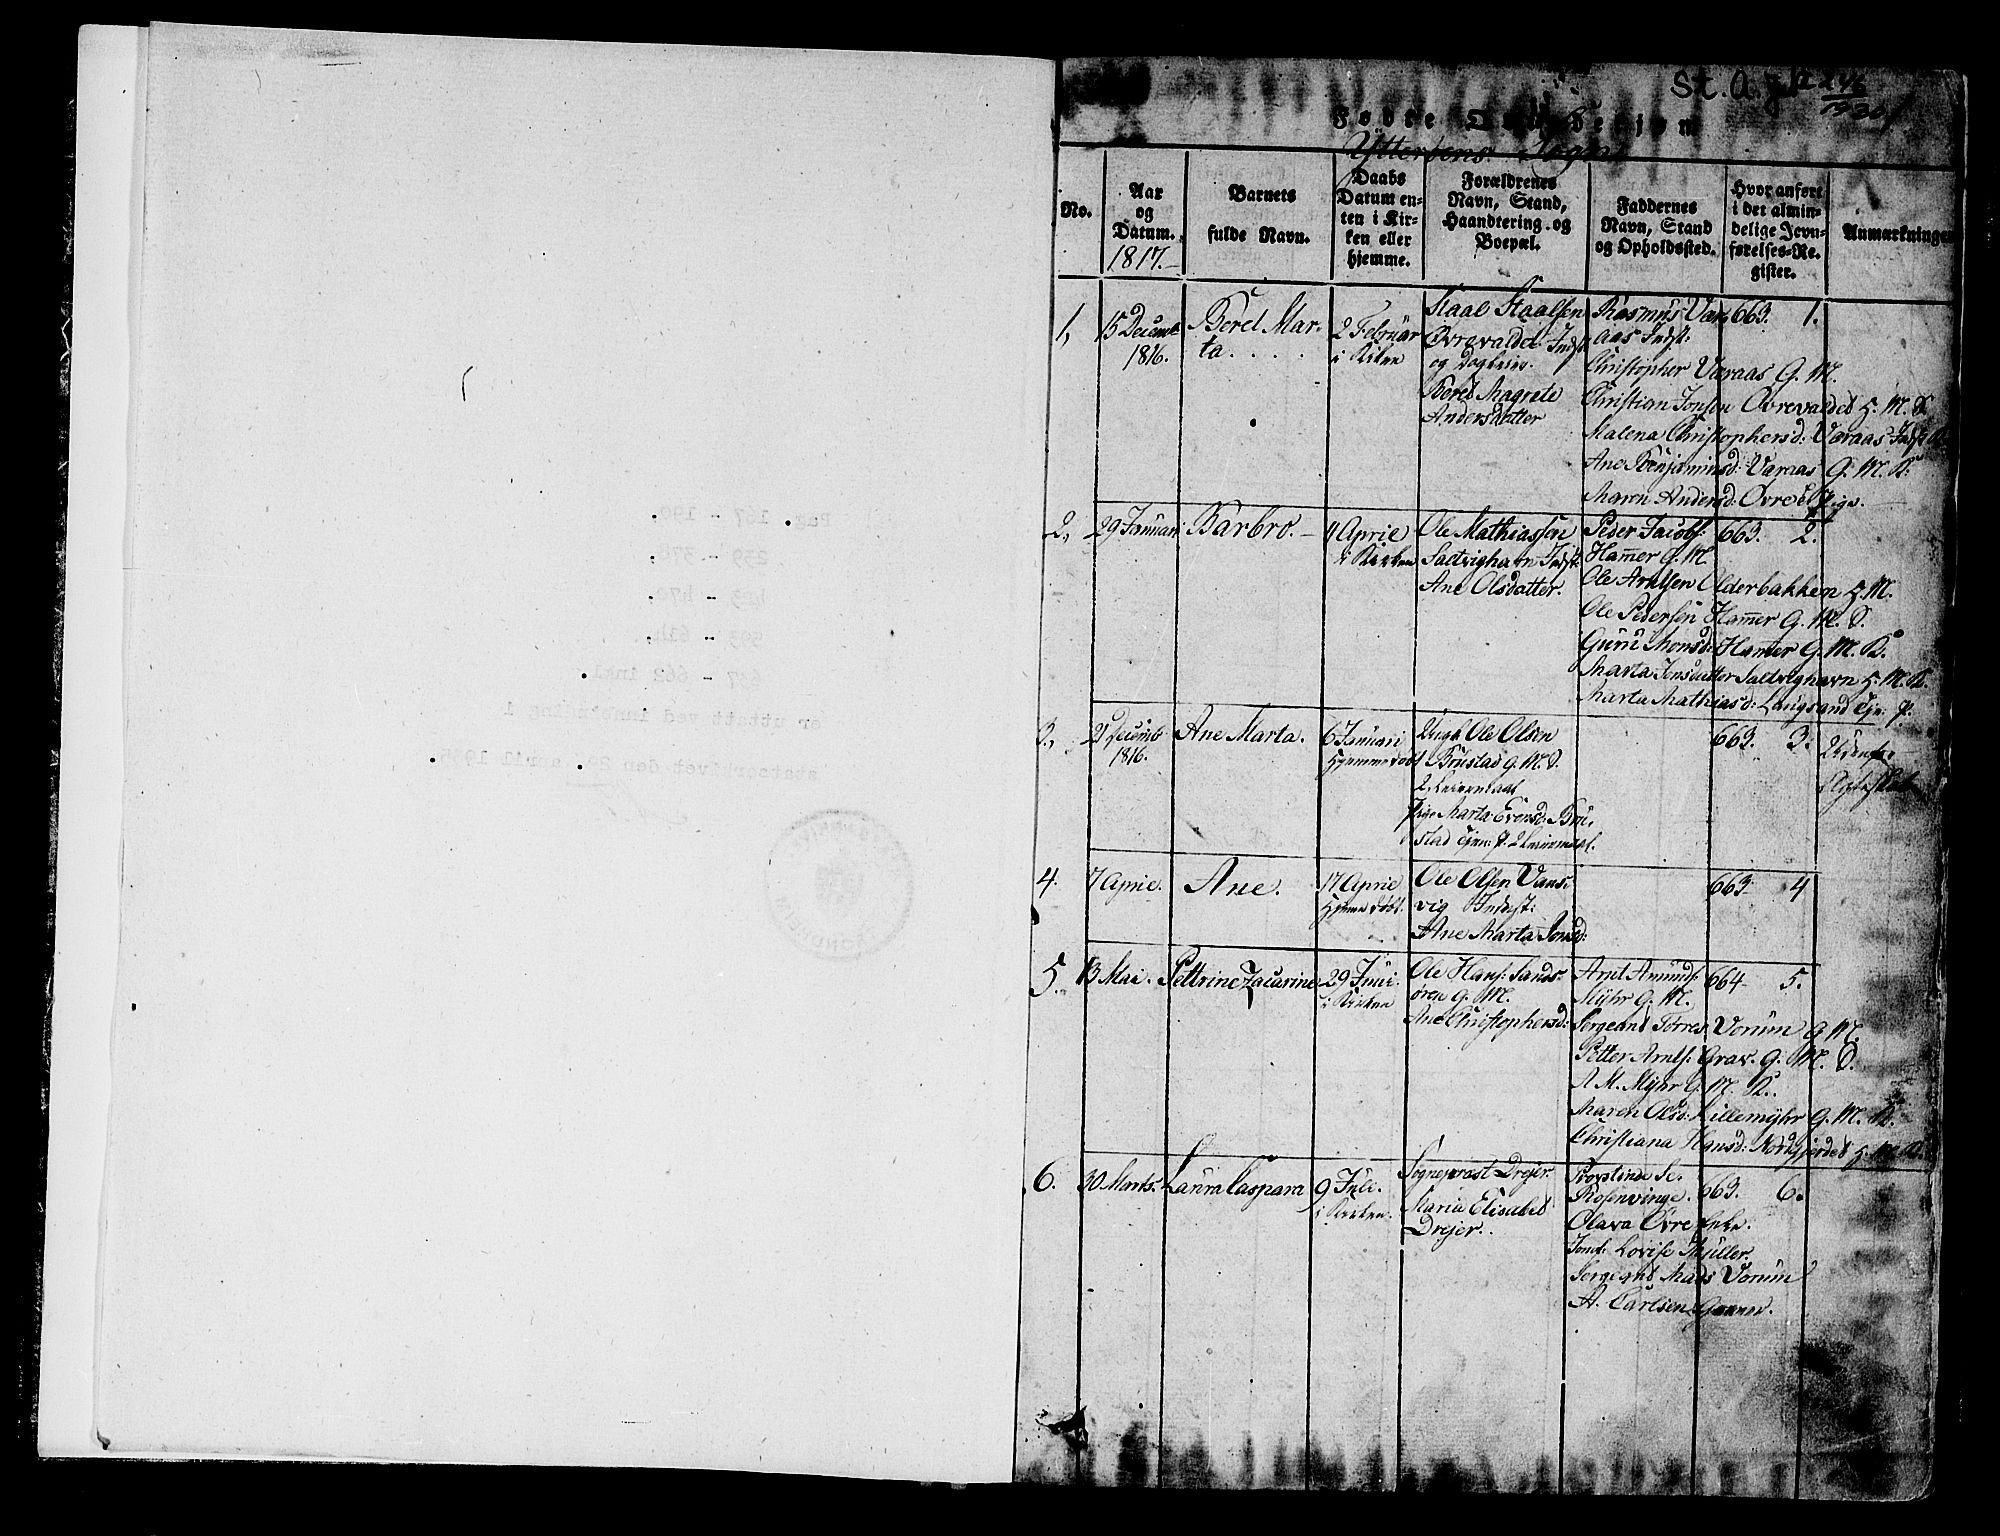 St. A.
1930
1
Ytterøens Sogn
No.
Aar
og
Datum.
1817.
Barnets
fulde Navn.
Daabs
Datum en-
ten i Kir-
ken eller
hjemme.
Forældrenes
Navn, Stand,
Haandtering og
Boepæl.
Faddernes
Navn, Stand
og Opholdssted.
Hvor anført
i det almin-
delige Jevn-
førelses-Re-
gister.
Anmærkninger
1,
15 Decemb
1816.
Beret Mar-
ta
2 Februar
i Kirken
Staal Staalsen
Øvrevaldet Indst
Beret Magrete
Andersdatter
Rasmus Vær-
aas Indst:
Christopher Væraas G. M.
Christian Jonsen Øvrevaldet H. M. S.
Malena Christophersd: Væraas Indst K.
Ane Benjaminsd: Væraas G. M. K.
Maren Andersd: Øvre Pige.
663. 1.
2,
29 Januari
Barbro.
4 April
i Kirken
Ole Mathiassen
Saltvighavn Indst:
Ane Olsdatter.
Peder Jacobs:
Hamer G. M.
Ole Arntsen Olderbakken H. M.
Ole Pedersen Hamer G. M. S.
Guru Monsd: Hamer G. M. K.
Marta Jonsdatter Saltvighavn H. M. K.
Marta Mathiasd: Langsand Tje. P.
663. 2.
3.,
2 Decemb
1816.
Ane Marta.
6 Januari
Hjemmedøbt
Ungk Ole Olsen
Brustad G. M. S.
2 Leiermaal
Pige Marta Evensd: Bru-
stad Tjen: P. 2 Leiermaal.
663. 3.
Uidenfor
Ægteskab
4.
7 April.
Ane.
17 April
Hjemmedøbt.
Ole Olsen Vans-
vig Indst:
Ane Marta Jonsd:
663. 4
5.
13 Mai.
Pettrine Zacarine
29 Juni.
i Kirken
Ole Hans: Sands-
øren G. M.
Ane Christophersd:
Arnt Amunds:
Myhr G. M.
Sergeand Torres Vorum G M.
Petter Arnts: Grav. G. M. S.
A M. Myhr G. M. K.
Maren Olsd: Lillemyhr G. M. K.
Christiana Hansd: Nordgjerdet H. M. K.
664 5.
6.
30 Marts.
Laura Caspara
9 Juli.
i Kirken.
Sogneprast Drejer.
Maria Elisabet
Drejer.
Provstinde Se.
Rosenvinge.
Olava Øvre Enke.
Jomf: Lovise Müller.
Sergeand Mads Vorum
A. Carlsen
663. 6.
Pag. 167 - 199.
229 - 378.
423 - 470.
593 - 614.
637 - 662 inkl.
er uttatt ved innbinding i
statsarkivet den 29. april 1935